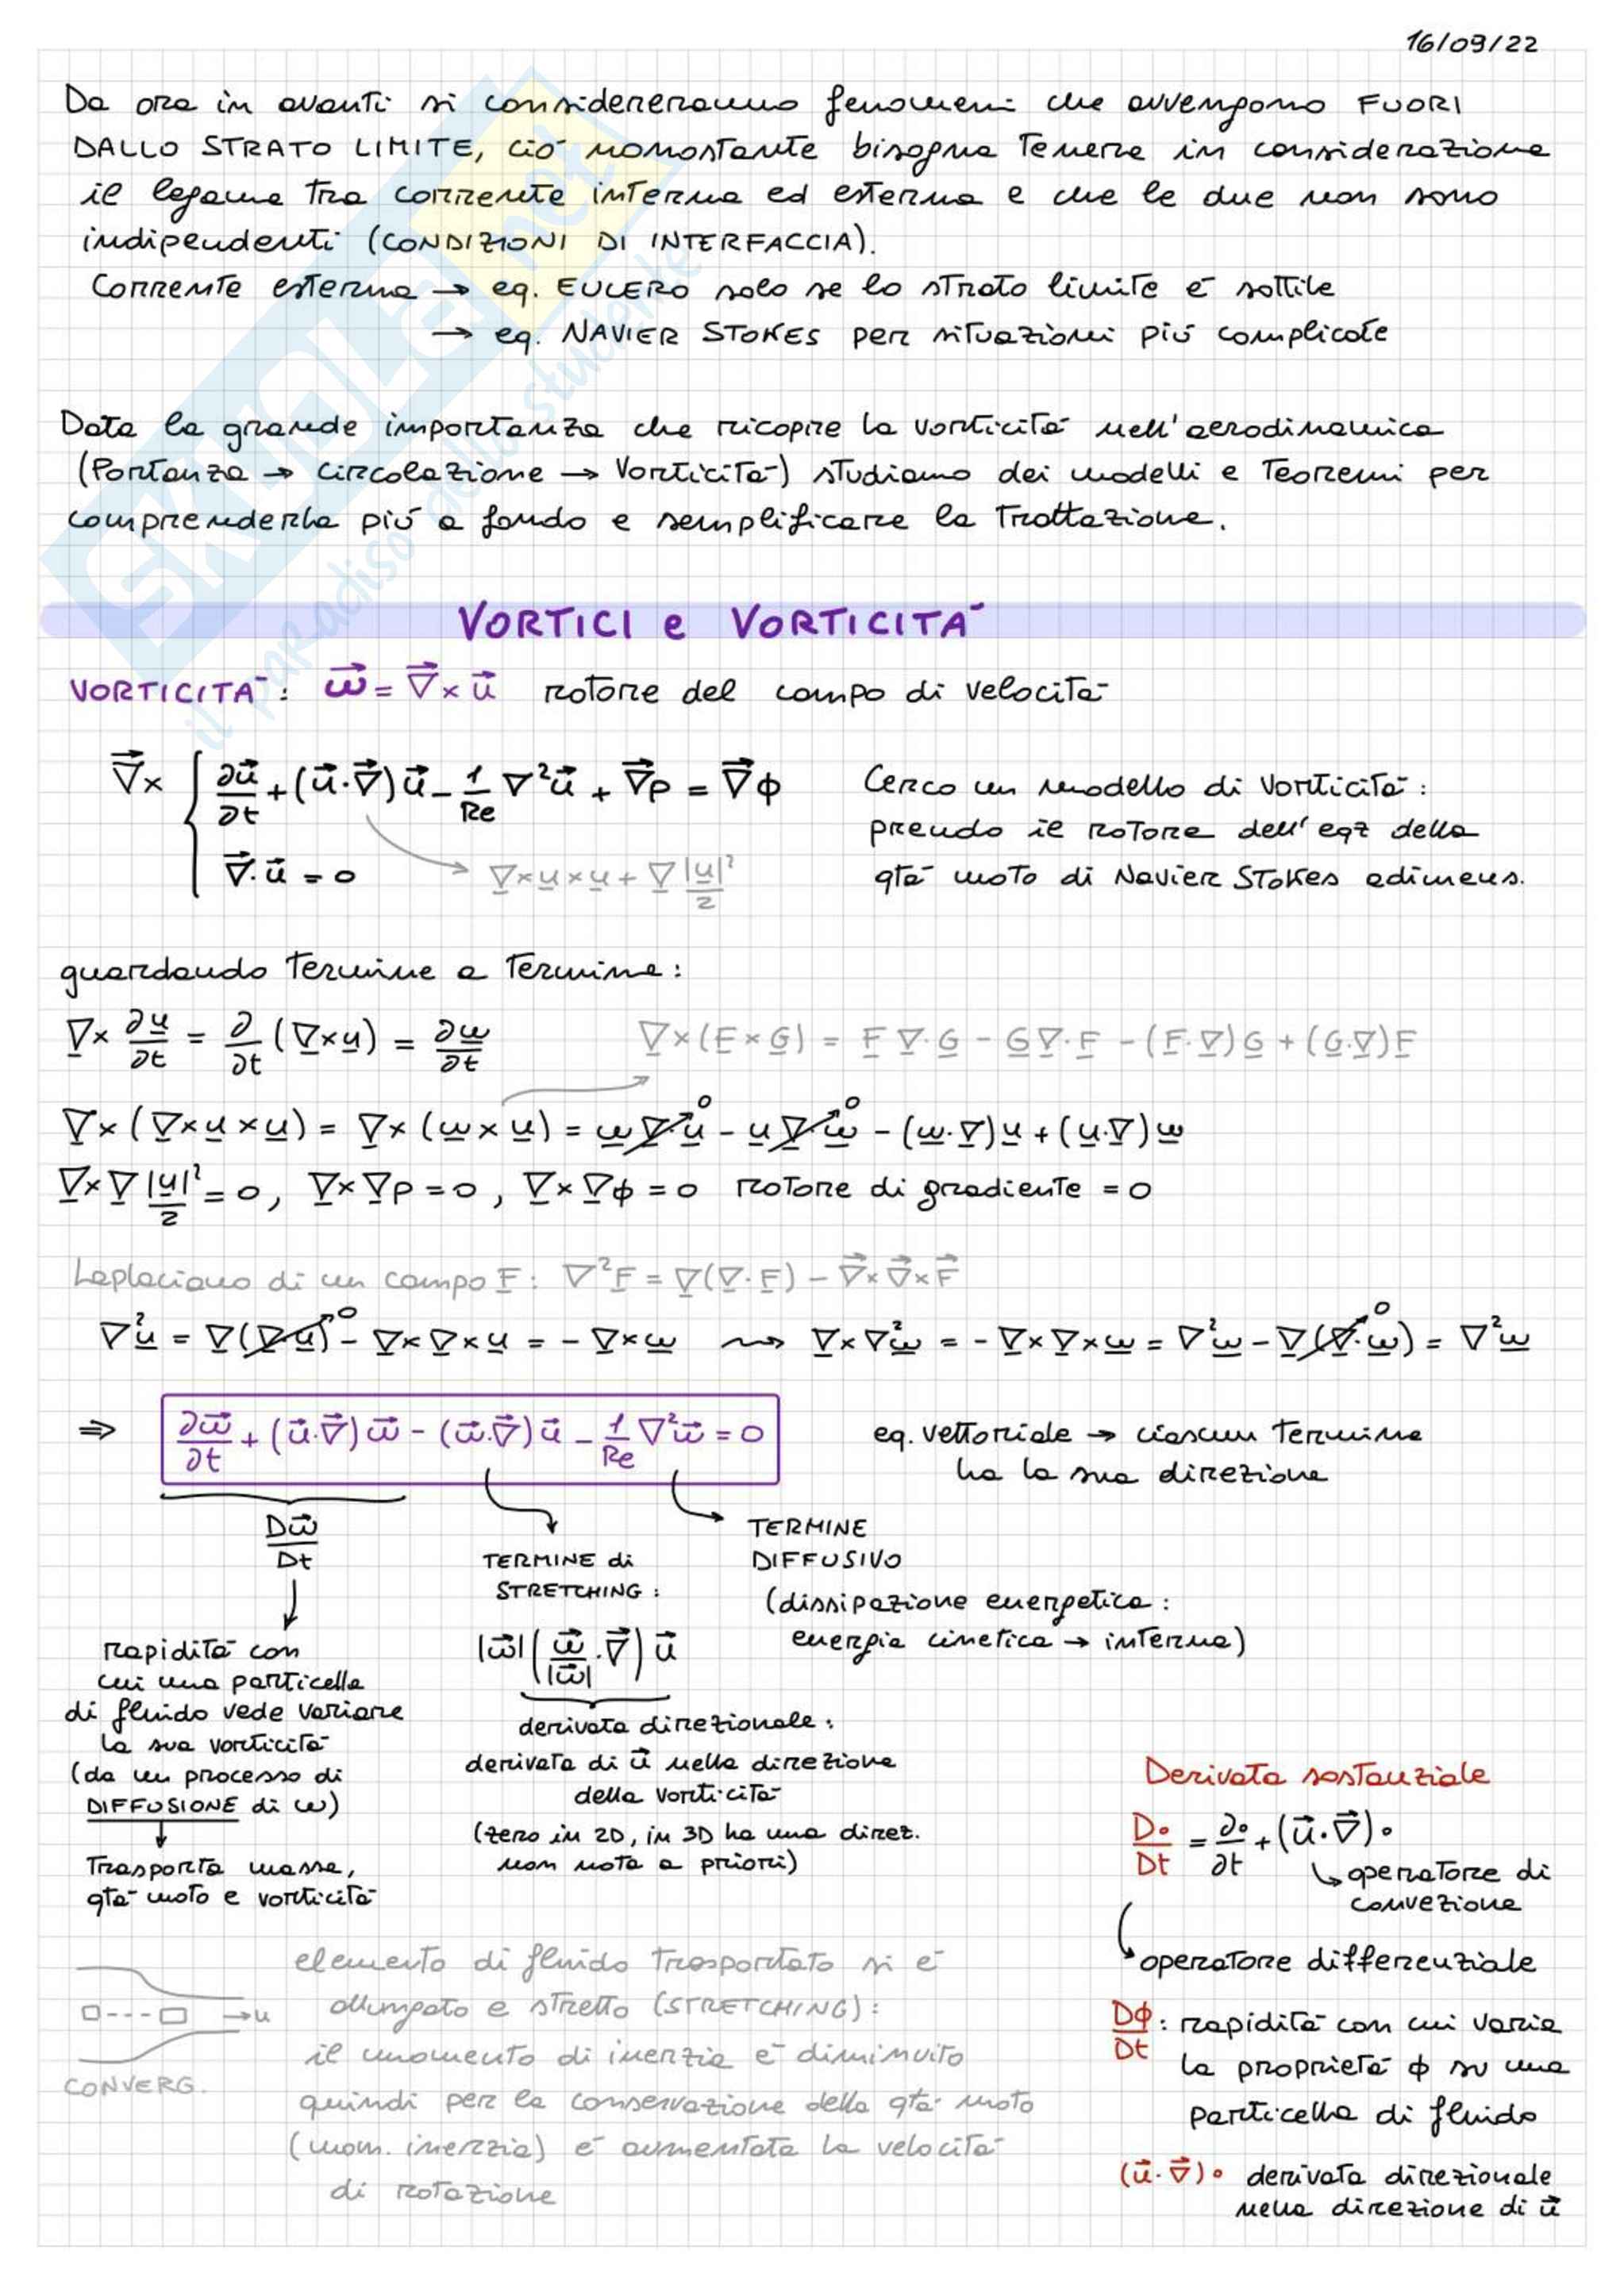 16/09/22
Da ora in avanti si considereranno fenomeni che avvengono FUORI
DALLO STRATO LIMITE, ciò nonostante bisogna tenere in considerazione
il legame tra corrente interna ed esterna e che le due non sono
indipendenti (CONDIZIONI DI INTERFACCIA).
Corrente esterna → eq. EULERO solo se lo strato limite è sottile
→ eq. NAVIER STOKES per situazioni più complicate
Data la grande importanza che ricopre la vorticità nell'aerodinamica
(Portanza → Circolazione → Vorticità) studiamo dei modelli e teoremi per
comprenderla più a fondo e semplificare la trattazione.
VORTICI e VORTICITÀ
VORTICITÀ: ω⃗ = ∇⃗ × u⃗ rotore del campo di velocità
∇⃗× { ∂u⃗/∂t + (u⃗·∇⃗)u⃗ - 1/Re ∇²u⃗ + ∇⃗p = ∇⃗ϕ
Cerco un modello di vorticità:
prendo il rotore dell'eqz della
∇⃗·u⃗ = 0 → ∇×u×u + ∇|u|²/2
qtà moto di Navier Stokes adimens.
guardando termine a termine:
∇× ∂u/∂t = ∂/∂t (∇×u) = ∂ω/∂t
∇×(F×G) = F ∇·G - G∇·F - (F·∇)G + (G·∇)F
∇×(∇×u×u) = ∇×(ω×u) = ω∇·u⁰ - u∇·ω⁰ - (ω·∇)u + (u·∇)ω
∇×∇|u|²/2 = 0, ∇×∇p = 0, ∇×∇ϕ = 0 rotore di gradiente = 0
Laplaciano di un campo F: ∇²F = ∇(∇·F) - ∇⃗×∇⃗×F⃗
∇²u = ∇(∇·u)⁰ - ∇×∇×u = -∇×ω ⇝ ∇×∇²ω = -∇×∇×ω = ∇²ω - ∇(∇·ω)⁰ = ∇²ω
⇒ ∂ω⃗/∂t + (u⃗·∇⃗)ω⃗ - (ω⃗·∇⃗)u⃗ - 1/Re ∇²ω⃗ = 0
eq. vettoriale → ciascun termine
ha la sua direzione
Dω⃗/Dt
rapidità con
cui una particella
di fluido vede variare
la sua vorticità
(da un processo di
DIFFUSIONE di ω)
Trasporta massa,
qtà moto e vorticità
TERMINE di
STRETCHING:
|ω⃗|(ω⃗/|ω⃗|·∇⃗)u⃗
derivata direzionale:
derivata di u⃗ nella direzione
della vorticità
(zero in 2D, in 3D ha una direz.
non nota a priori)
TERMINE
DIFFUSIVO
(dissipazione energetica:
energia cinetica → interna)
Derivata sostanziale
D∘/Dt = ∂∘/∂t + (u⃗·∇⃗)∘
operatore di
convezione
operatore differenziale
Dϕ/Dt: rapidità con cui varia
la proprietà ϕ su una
particella di fluido
(u⃗·∇⃗)∘ derivata direzionale
nella direzione di u⃗
→u
CONVERG.
elemento di fluido trasportato si è
allungato e stretto (STRETCHING):
il momento di inerzia è diminuito
quindi per la conservazione della qtà moto
(mom. inerzia) è aumentata la velocità
di rotazione
SKUOLA.net
il paradiso dello studente